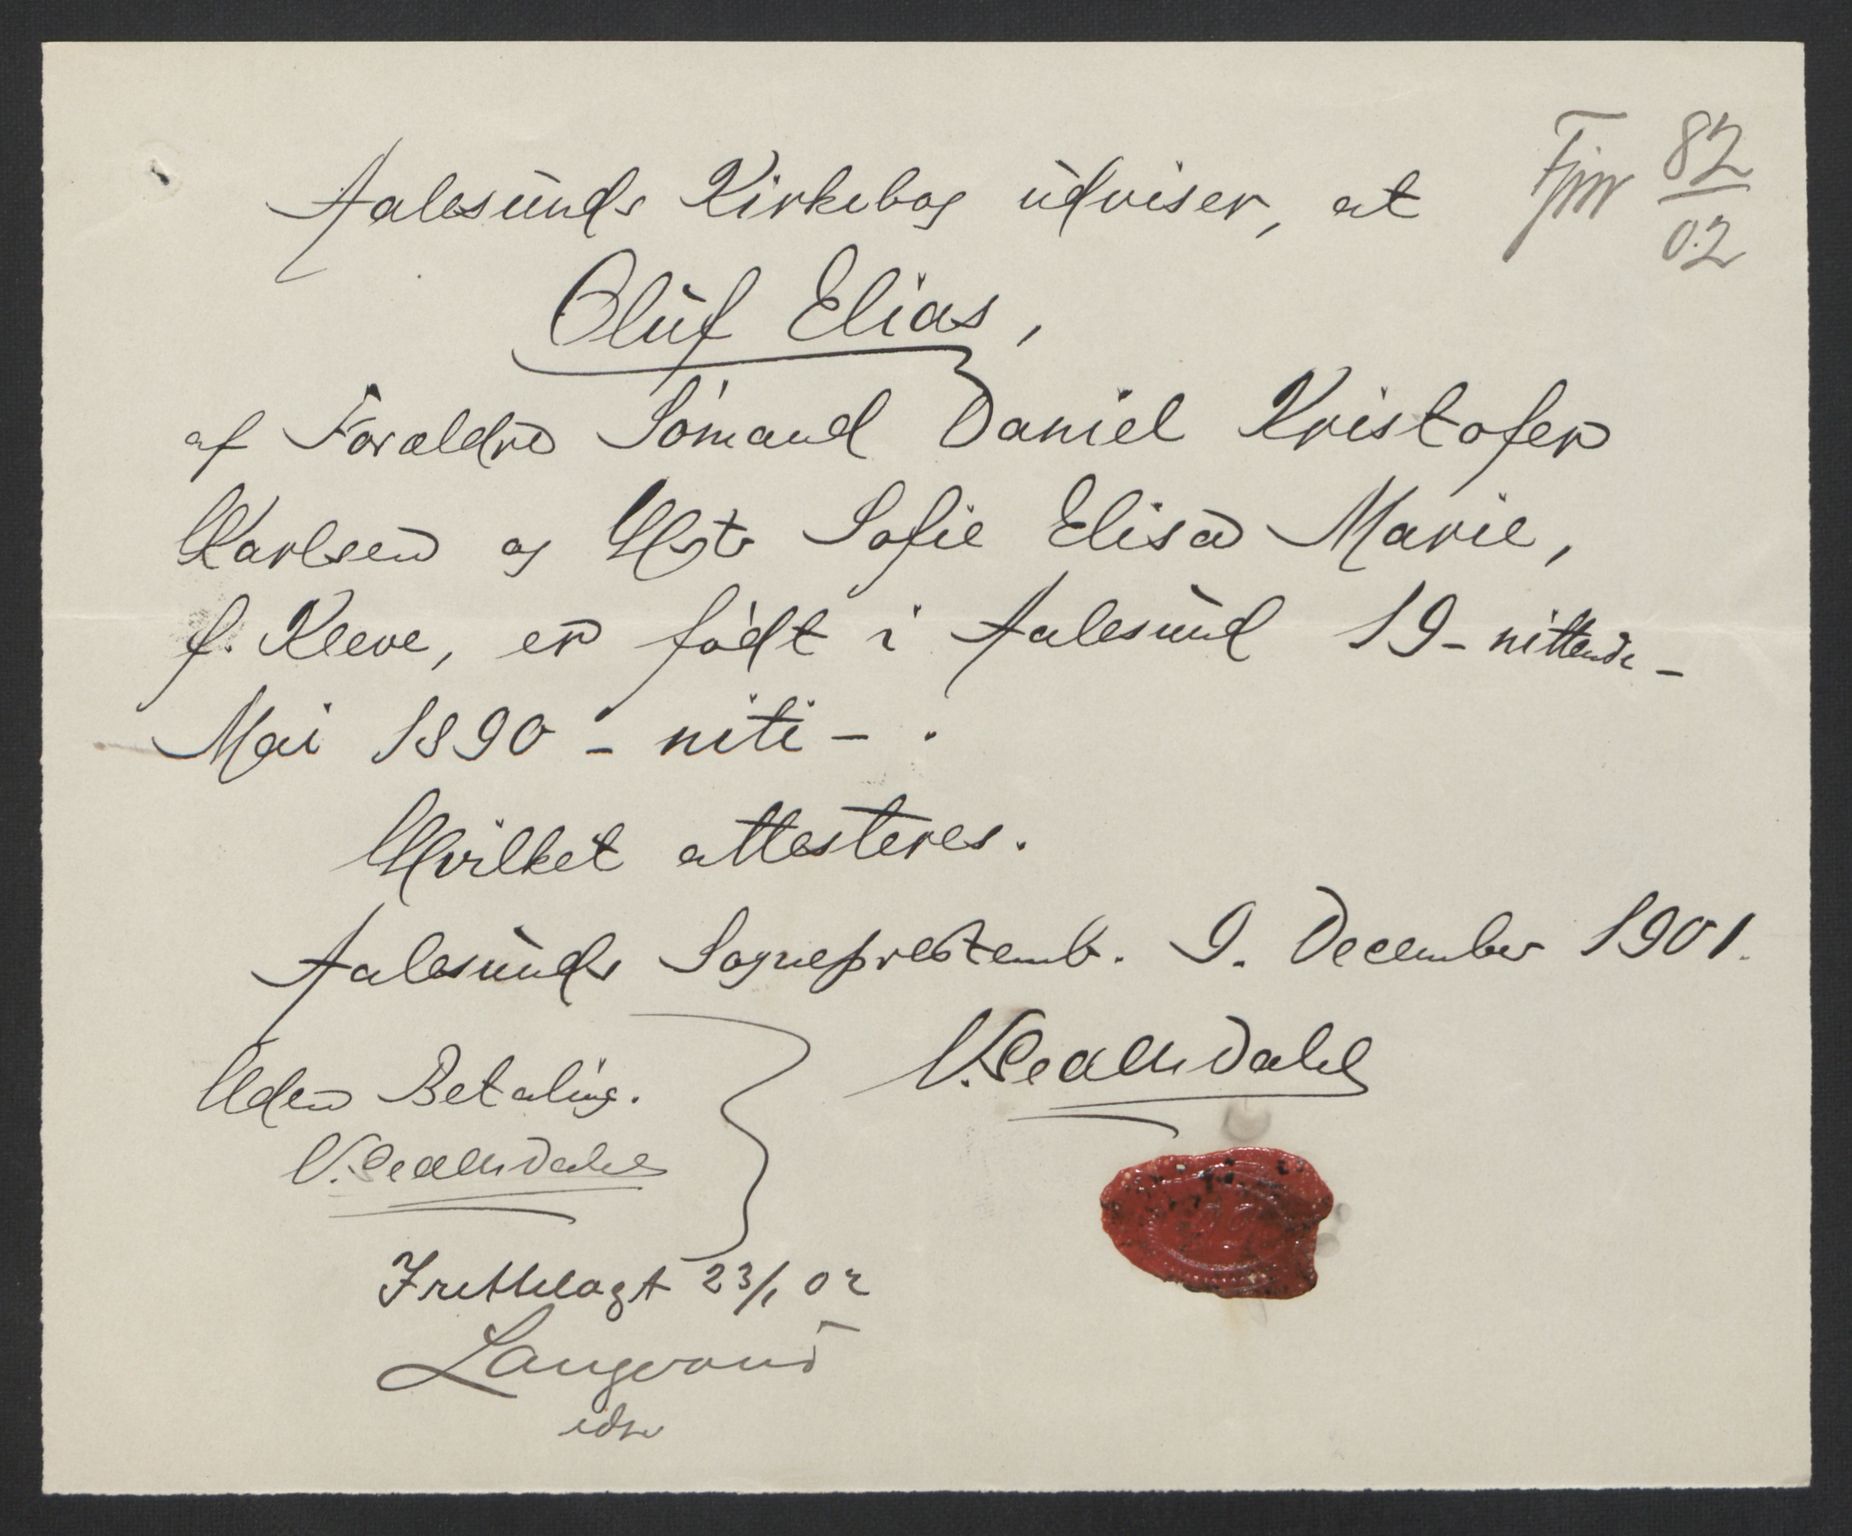 Fjnr 82/02
Aalesunds Kirkebog udviser, at
Oluf Elias,
af Forældre Sömand Daniel Kristofer
Karlsen og Hst Sofie Elisa Marie,
f. Kleve, er født i Aalesund 19 - nittende -
Mai 1890 - niti - .
Hvilket attesteres.
Aalesunds Sogneprestemb. 9. December 1901.
Uden Betaling.
Fremlagt 23/1 02
Langvand